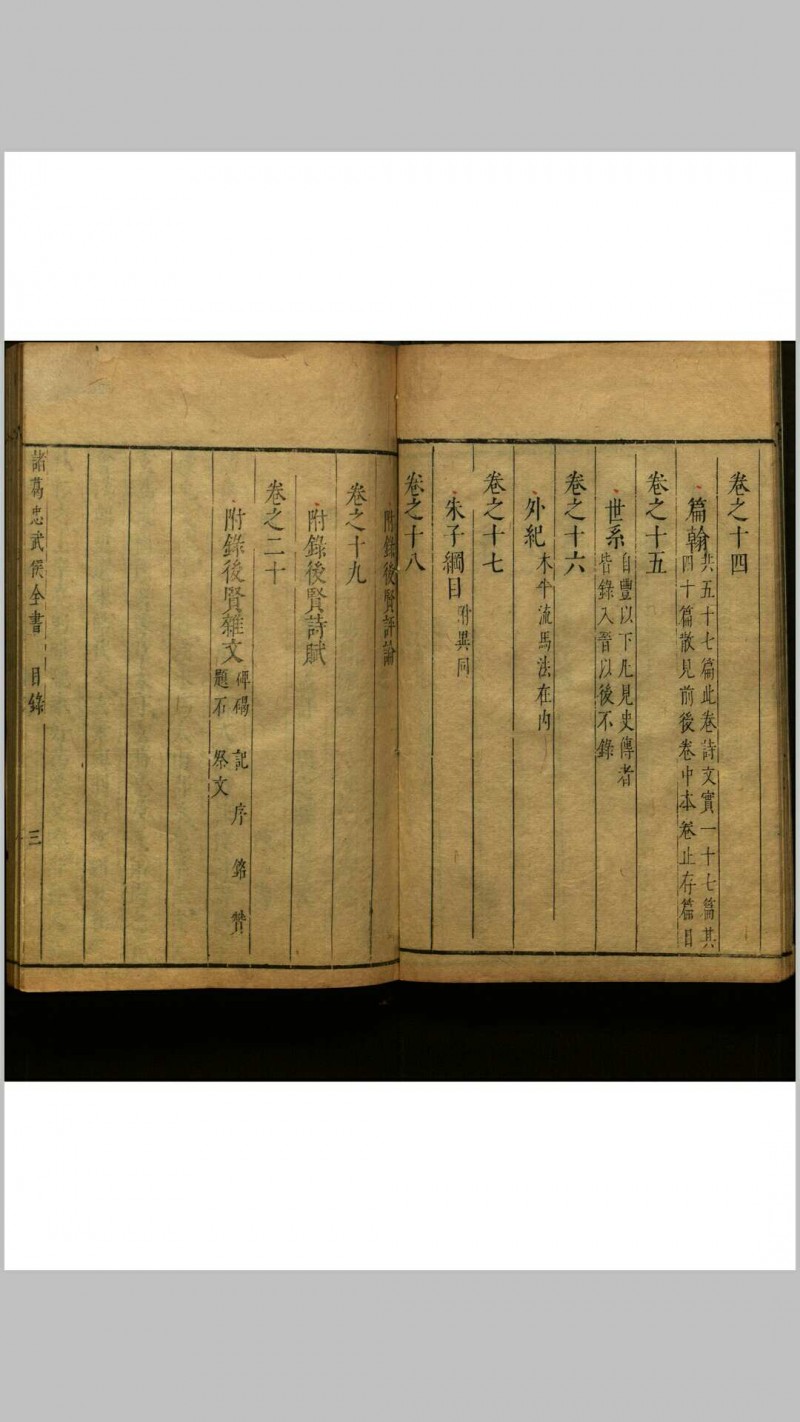 卷之十四
篇翰 共五十七篇此卷詩文實一十七篇其
四十篇散見前後卷中本卷止存篇目
卷之十五
世系 自豐以下凡見史傳者
皆錄入晉以後不錄
卷之十六
外紀 木牛流馬法在内
卷之十七
朱子綱目 附異同
卷之十八
附錄後賢評論
卷之十九
附錄後賢詩賦
卷之二十
附錄後賢雜文 碑碣 記 序 銘 贊
題石 祭文
諸葛忠武侯全書 目錄 三